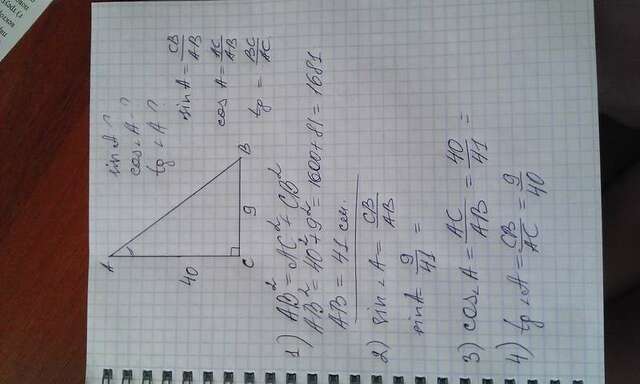 sin A ?
cos ∠A ?
tg ∠A ?
A
B
C
40
9
sin A = CB/AB
cos A = AC/AB
tg = BC/AC
1) AB² = AC² + CB²
AB² = 40² + 9² = 1600 + 81 = 1681
AB = 41 см.
2) sin ∠A = CB/AB
sin A = 9/41 =
3) cos ∠A = AC/AB = 40/41 =
4) tg ∠A = CB/AC = 9/40